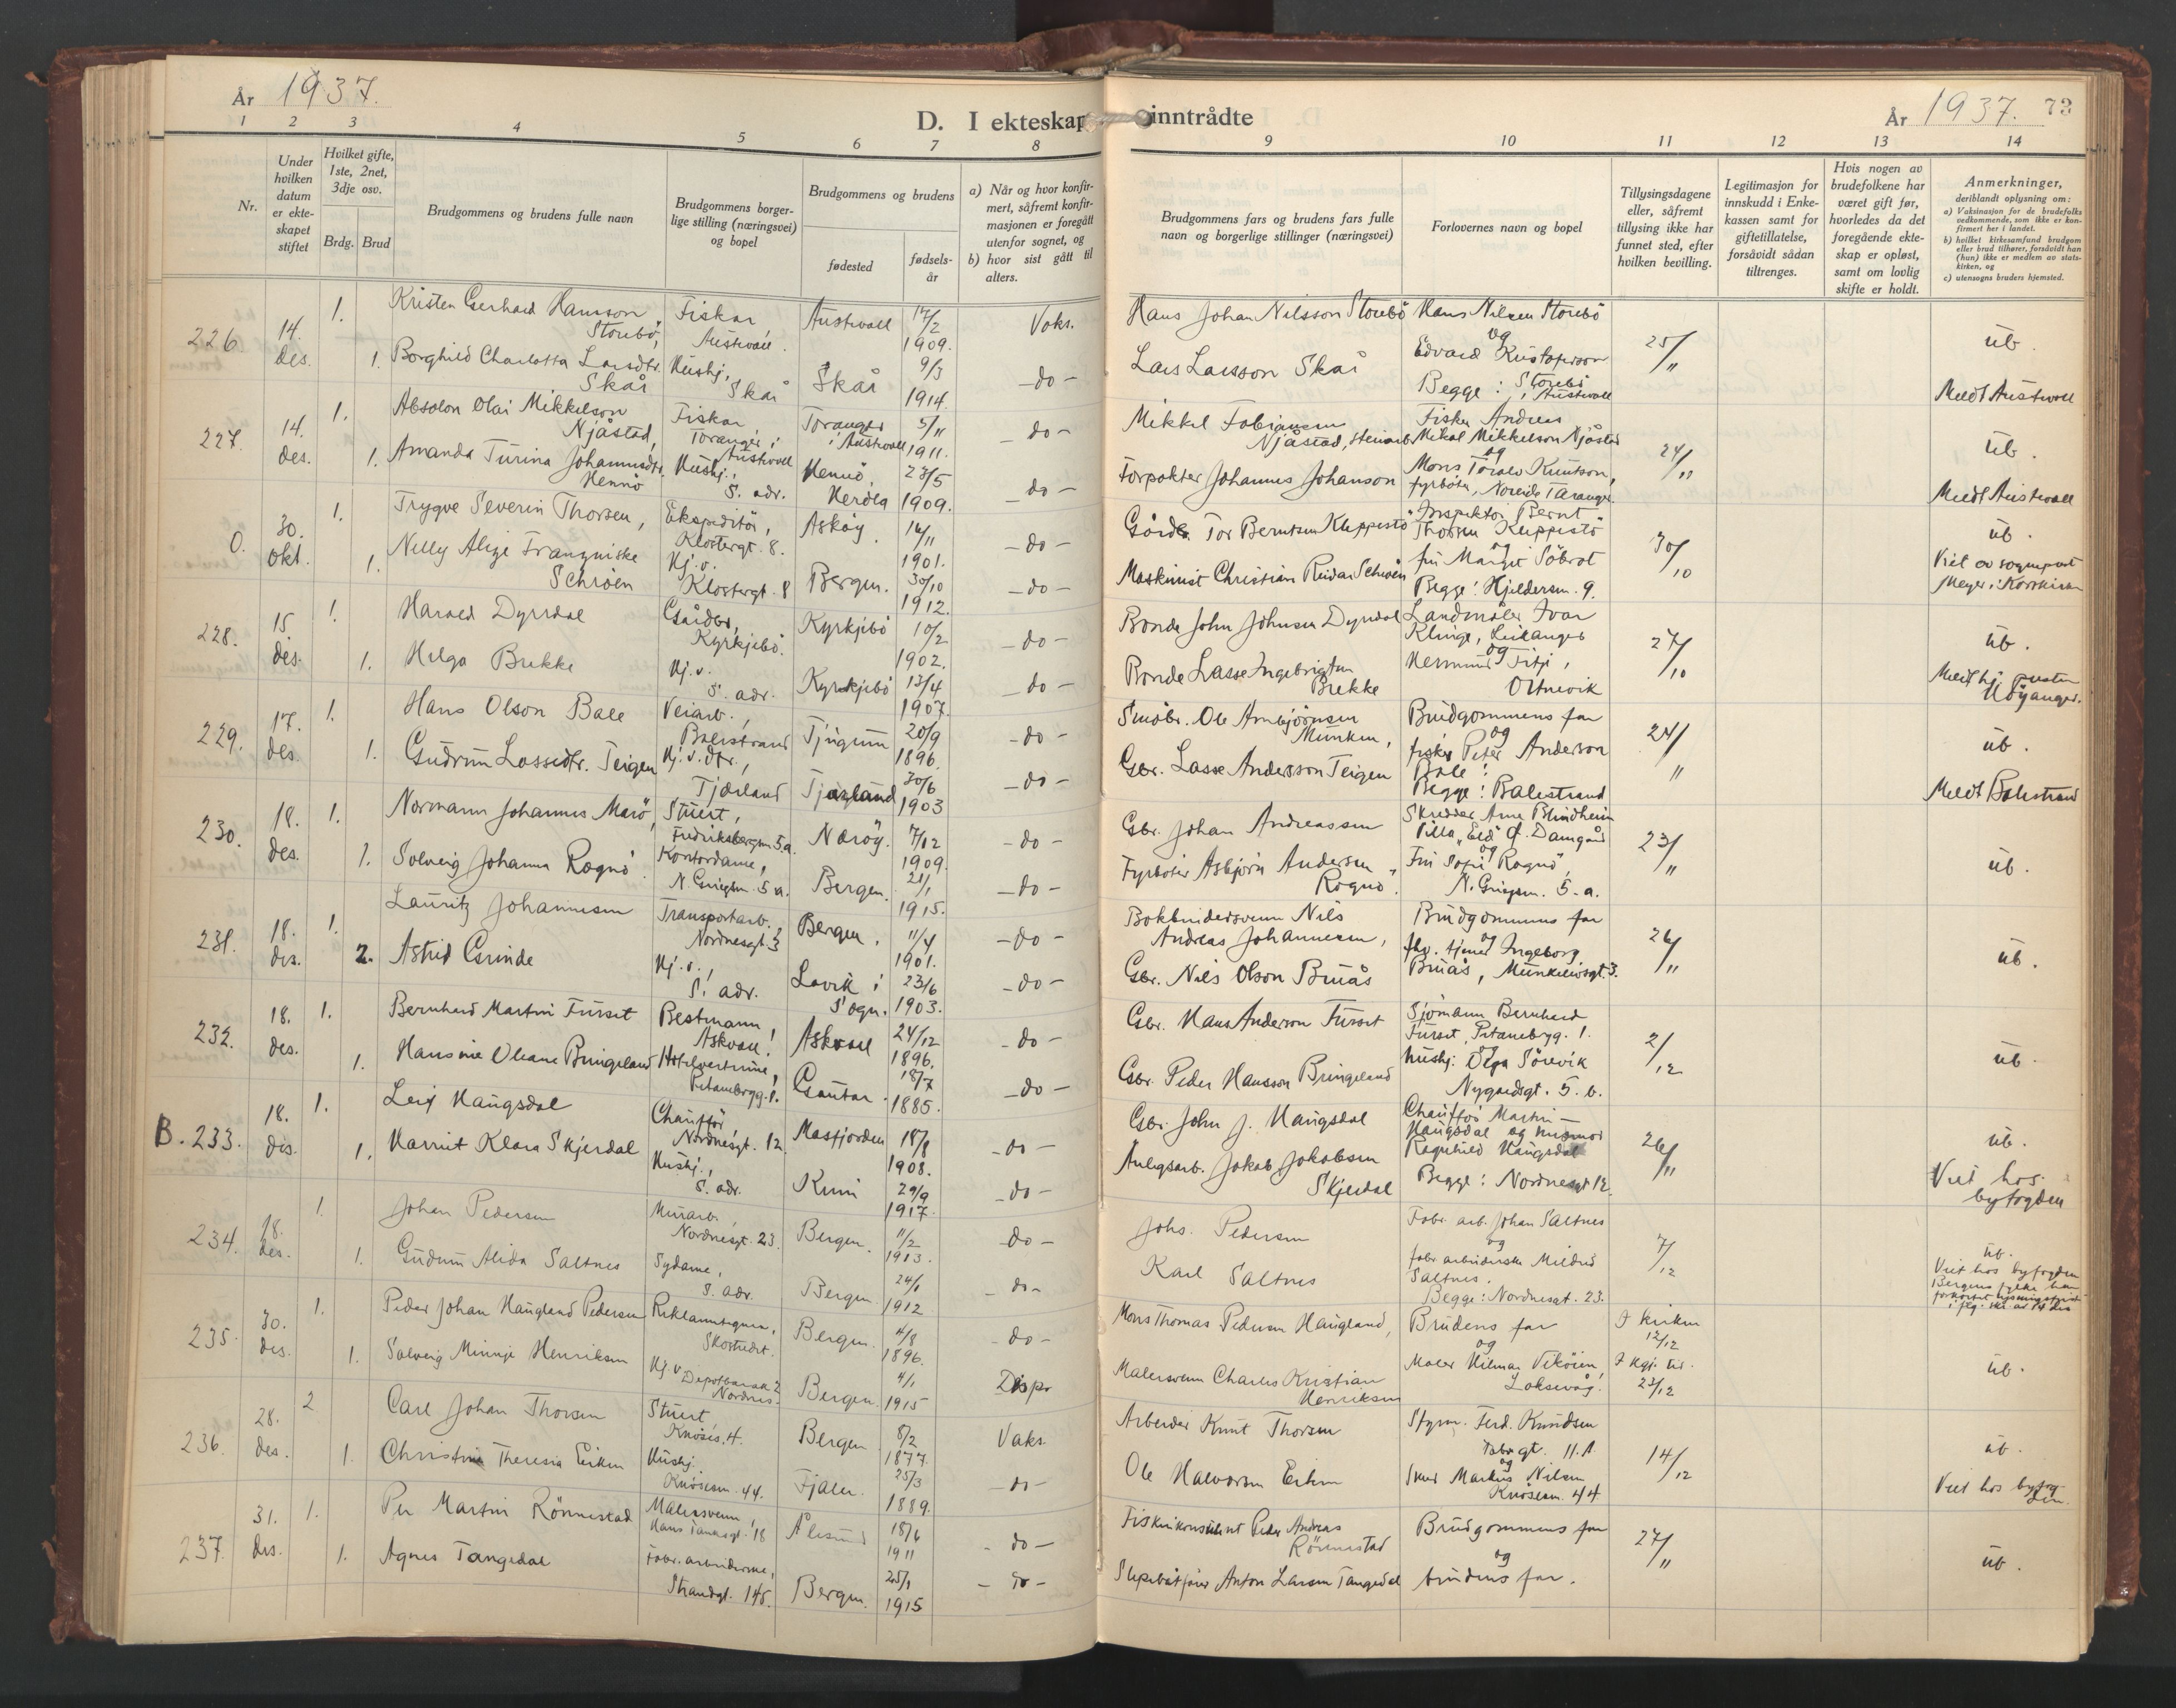 År 1937.
D. I ekteskap inntrådte
År 1937. 73
1 2 3 4 5 6 7 8 9 10 11 12 13 14
Nr.
Under hvilken datum er ekteskapet stiftet
Hvilket gifte, 1ste, 2net, 3dje osv.
Brdg. Brud
Brudgommens og brudens fulle navn
Brudgommens borgerlige stilling (næringsvei) og bopel
Brudgommens og brudens
fødested
fødselsår
a) Når og hvor konfirmert, såfremt konfirmasjonen er foregått utenfor sognet, og
b) hvor sist gått til alters.
Brudgommens fars og brudens fars fulle navn og borgerlige stillinger (næringsvei)
Forlovernes navn og bopel
Tillysingsdagene eller, såfremt tillysing ikke har funnet sted, efter hvilken bevilling.
Legitimasjon for innskudd i Enkekassen samt for giftetillatelse, forsåvidt sådan tiltrenges.
Hvis nogen av brudefolkene har været gift før, hvorledes da det foregående ekteskap er opløst, samt om lovlig skifte er holdt.
Anmerkninger, deriblandt oplysning om:
a) Vaksinasjon for de brudefolks vedkommende, som ikke er konfirmert her i landet.
b) hvilket kirkesamfund brudgom eller brud tilhører, forsåvidt han (hun) ikke er medlem av statskirken, og
c) utensogns bruders hjemsted.
226 14. des. 1. Kristen Gerhard Hansson Storebö, Fiskar, Austevoll. Austevoll 17/2 1909. Vaks. Hans Johan Nilsson Storebö Hans Nilsen Storebö og 25/11 ub.
1. Borghild Charlotta Larsdtr. Skår Hushj., Skår Skår 9/3 1914. -do- Lars Larsson Skår Edvard Kristoferson Begge: Storebö i Austevoll Meldt Austevoll
227. 14. des. 1. Absolon Olai Mikkelson Njåstad, Fiskar Toranger i Austevoll Toranger i Austevoll 5/11 1911. -do- Mikkel Fabiansen Njåstad, Fisker Andreas Mikal Mikkelson Njåstad og 24/11 ub.
1. Amanda Turina Johannesdtr. Hennö Hushj., S. adr. Hennö, Herdla 23/5 1909. -do- Forpakter Johannes Johanson Mons Toralv Knutson, fyrböter, Taranger. Meldt Austevoll
O. 30. okt. 1. Trygve Severin Thorsen, Ekspeditör, Klostergt. 8. Asköy. 16/11 1901. -do- Gårdbr. Tor Berntsen Kleppestö Inspektör Bernt Thorsen Kleppestö og 30/10 ub.
1. Nelly Alize Franziske Schröen Hj.v. Klostergt. 8 Bergen. 30/10 1912. -do- Maskinist Christian Reidar Schröen fru Margit Söbrot Begge: Hjeldersm. 9. Viet av sogneprest Meyer i Korskirken
228. 15. des. 1. Harald Dyrdal Gårdbr., Kyrkjebö. Kyrkjebö 10/2 1902. -do- Bonde John Johnsen Dyrdal Landmåler Ivar Klinge, Leikanger og 27/10 ub.
1. Helga Brekke Hj.v. S. adr. Kyrkjebö 13/4 1907. -do- Bonde Lasse Ingebrigtsen Brekke Hermund Fitje, Ortnevik Meldt hj. presten Höyanger.
229. 17. des. 1. Hans Olson Bale Veiarb., Balestrand Tjugum 20/9 1896. -do- Småbr. Ole Arnbjörnsen Munken, Brudgommens far og 24/11 ub.
1. Gudrun Lassedtr. Teigen Hj.v. dtr., Fjærland Fjærland 30/6 1903 -do- Gbr. Lasse Anderson Teigen fisker Peter Anderson Bale. Begge: Balestrand Meldt Balestrand
230. 18. des. 1. Normann Johannes Marö, Stuert, Fredriksbergsm. 5.a. Næröy. 7/12 1909. -do- Gbr. Johan Andreassen Skredder Arne Blindheim Villa "Eld" Damgård og 23/11 ub.
1. Solveig Johanna Rognö. Kontordame, N. Griegsm. 5 a. Bergen. 21/1 1915. -do- Fyrböter Asbjörn Andersen Rognö. Fru Sofie Rognö, N. Griegsm. 5.a.
231. 18. des. 1. Lauritz Johannesen Transportarb. Nordnesgt. 3 Bergen. 11/4 1901. -do- Bokbindersvenn Nils Andreas Johannesen, Brudgommens far og 26/11 ub.
2. Astrid Grinde Hj.v., S. adr. Lavik i Sogn. 23/6 1903. -do- Gbr. Nils Olson Bruås fhv. tjener Ingeborg Bruås, Munkelivsgt. 3.
232. 18. des. 1. Bernhard Martin Furset Bestmann, Askvoll. Askvoll 24/12 1896. -do- Gbr. Hans Anderson Furset Sjömann Bernhard Furset, Pitanebryg. 1. og 2/12 ub.
1. Hansine Oleane Bringeland Hotelvertinne, Pitanebryg. 1. Gaular. 18/7 1885. -do- Gbr. Peder Hansson Bringeland hushj. Olga Sörevik Nygaardsgt. 5.b.
B. 233. 18. des. 1. Leif Haugsdal Chaufför, Nordnesgt. 12. Masfjorden 18/8 1908. -do- Gbr. John J. Haugsdal Chauffør Martin Haugsdal og husmor 26/11 ub.
1. Harriet Klara Skjerdal Hushj., S. adr. Kinn 29/9 1917. -do- Anlegsarb. Jakob Jakobsen Skjerdal Ragnhild Haugsdal Begge: Nordnesgt 12. Viet hos byfogden
234. 18. des. 1. Johan Pedersen Murarb., Nordnesgt. 23. Bergen. 11/2 1913. -do- Johs. Pedersen Fabr. arb. Johan Saltnes og 7/12 ub.
1. Gudrun Alida Saltnes Sydame, S. adr. Bergen. 24/1 1912 -do- Karl Saltnes fabr. arbeiderske Mildrid Saltnes. Begge: Nordnesgt. 23. Viet hos byfogden Bergens fylke har forkortet lysningsfrist i flg. skr. av 14 des
235. 30. des. 1. Peder Johan Haugland Pedersen Reklametegner, Skostredet. Bergen. 4/8 1896. -do- Mons Thomas Pedersen Haugland, Brudens far og I kirken 12/12
1. Solveig Minnje Henriksen Hj.v. Nordnes. Bergen. 4/1 1915 Dispr Malersvenn Charles Kristian Henriksen Maler Hilmar Viköien, Laksevåg. 23/12 ub.
236. 28. des. 2 Carl Johan Thorsen Stuert, Knösesm. 4. Bergen 8/2 1877. Vaks. Arbeider Knut Thorsen Styrm. Ferd. Knudsen 11.A og 14/12 ub.
1. Christine Theresia Eriksen Hushj. Knösesm. 44. Fjaler. 25/3 1889. -do- Ole Halvorsen Markus Nilsen Knösesm. 44 Viet hos byfogden.
237. 31. des. 1. Per Martin Rönnestad Malersvenn, Hans Tanksgt. 18 Ålesund 18/6 1911 -do- Fiskerikonsulent Peder Andreas Rönnestad Brudgommens far og 27/11 ub.
1. Agnes Tangedal Fabr. arbeiderske, Strandgt. 145. Bergen. 25/1 1915 -do- Slepebåtfører Anton Larsen Tangedal brudens far.